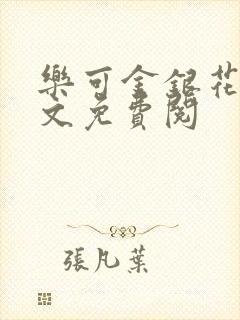 樂可金銀花
文免費閱
張凡葉